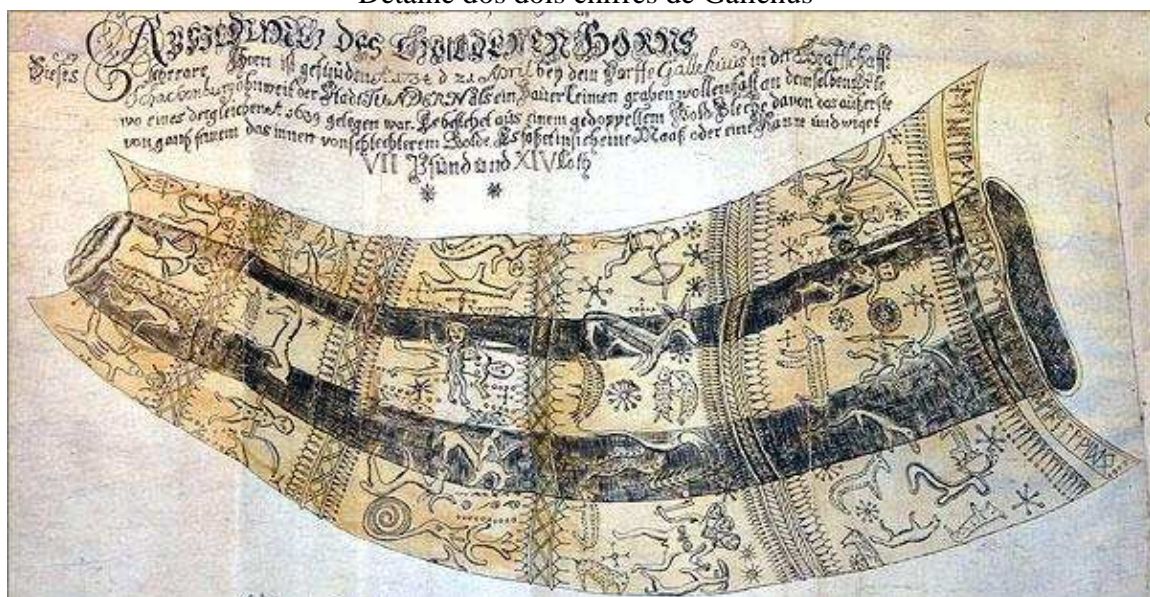 Detalhe dos dois chifres de Gallehus
ABBILDUNG des GULDENEN HORNS
Dieses schwere Horn ist gefunden Aº 1734 d 21 April bey dem Dorffe Gallehuus in der Graffschafft
Schackenburg ohnweit der Stadt TUNDERN als ein Bauer Leimen graben wollen an demselben
wo eines dergleichen Aº 1639 gelegen war. Es bestehet aus einem gedoppeltem Gold Bleche davon das äuserste
von gantz feinem das innere von schlechterem Golde. Es in sich eine Maaß oder eine Kanne und wiget
VII Pfund und XIV Loth